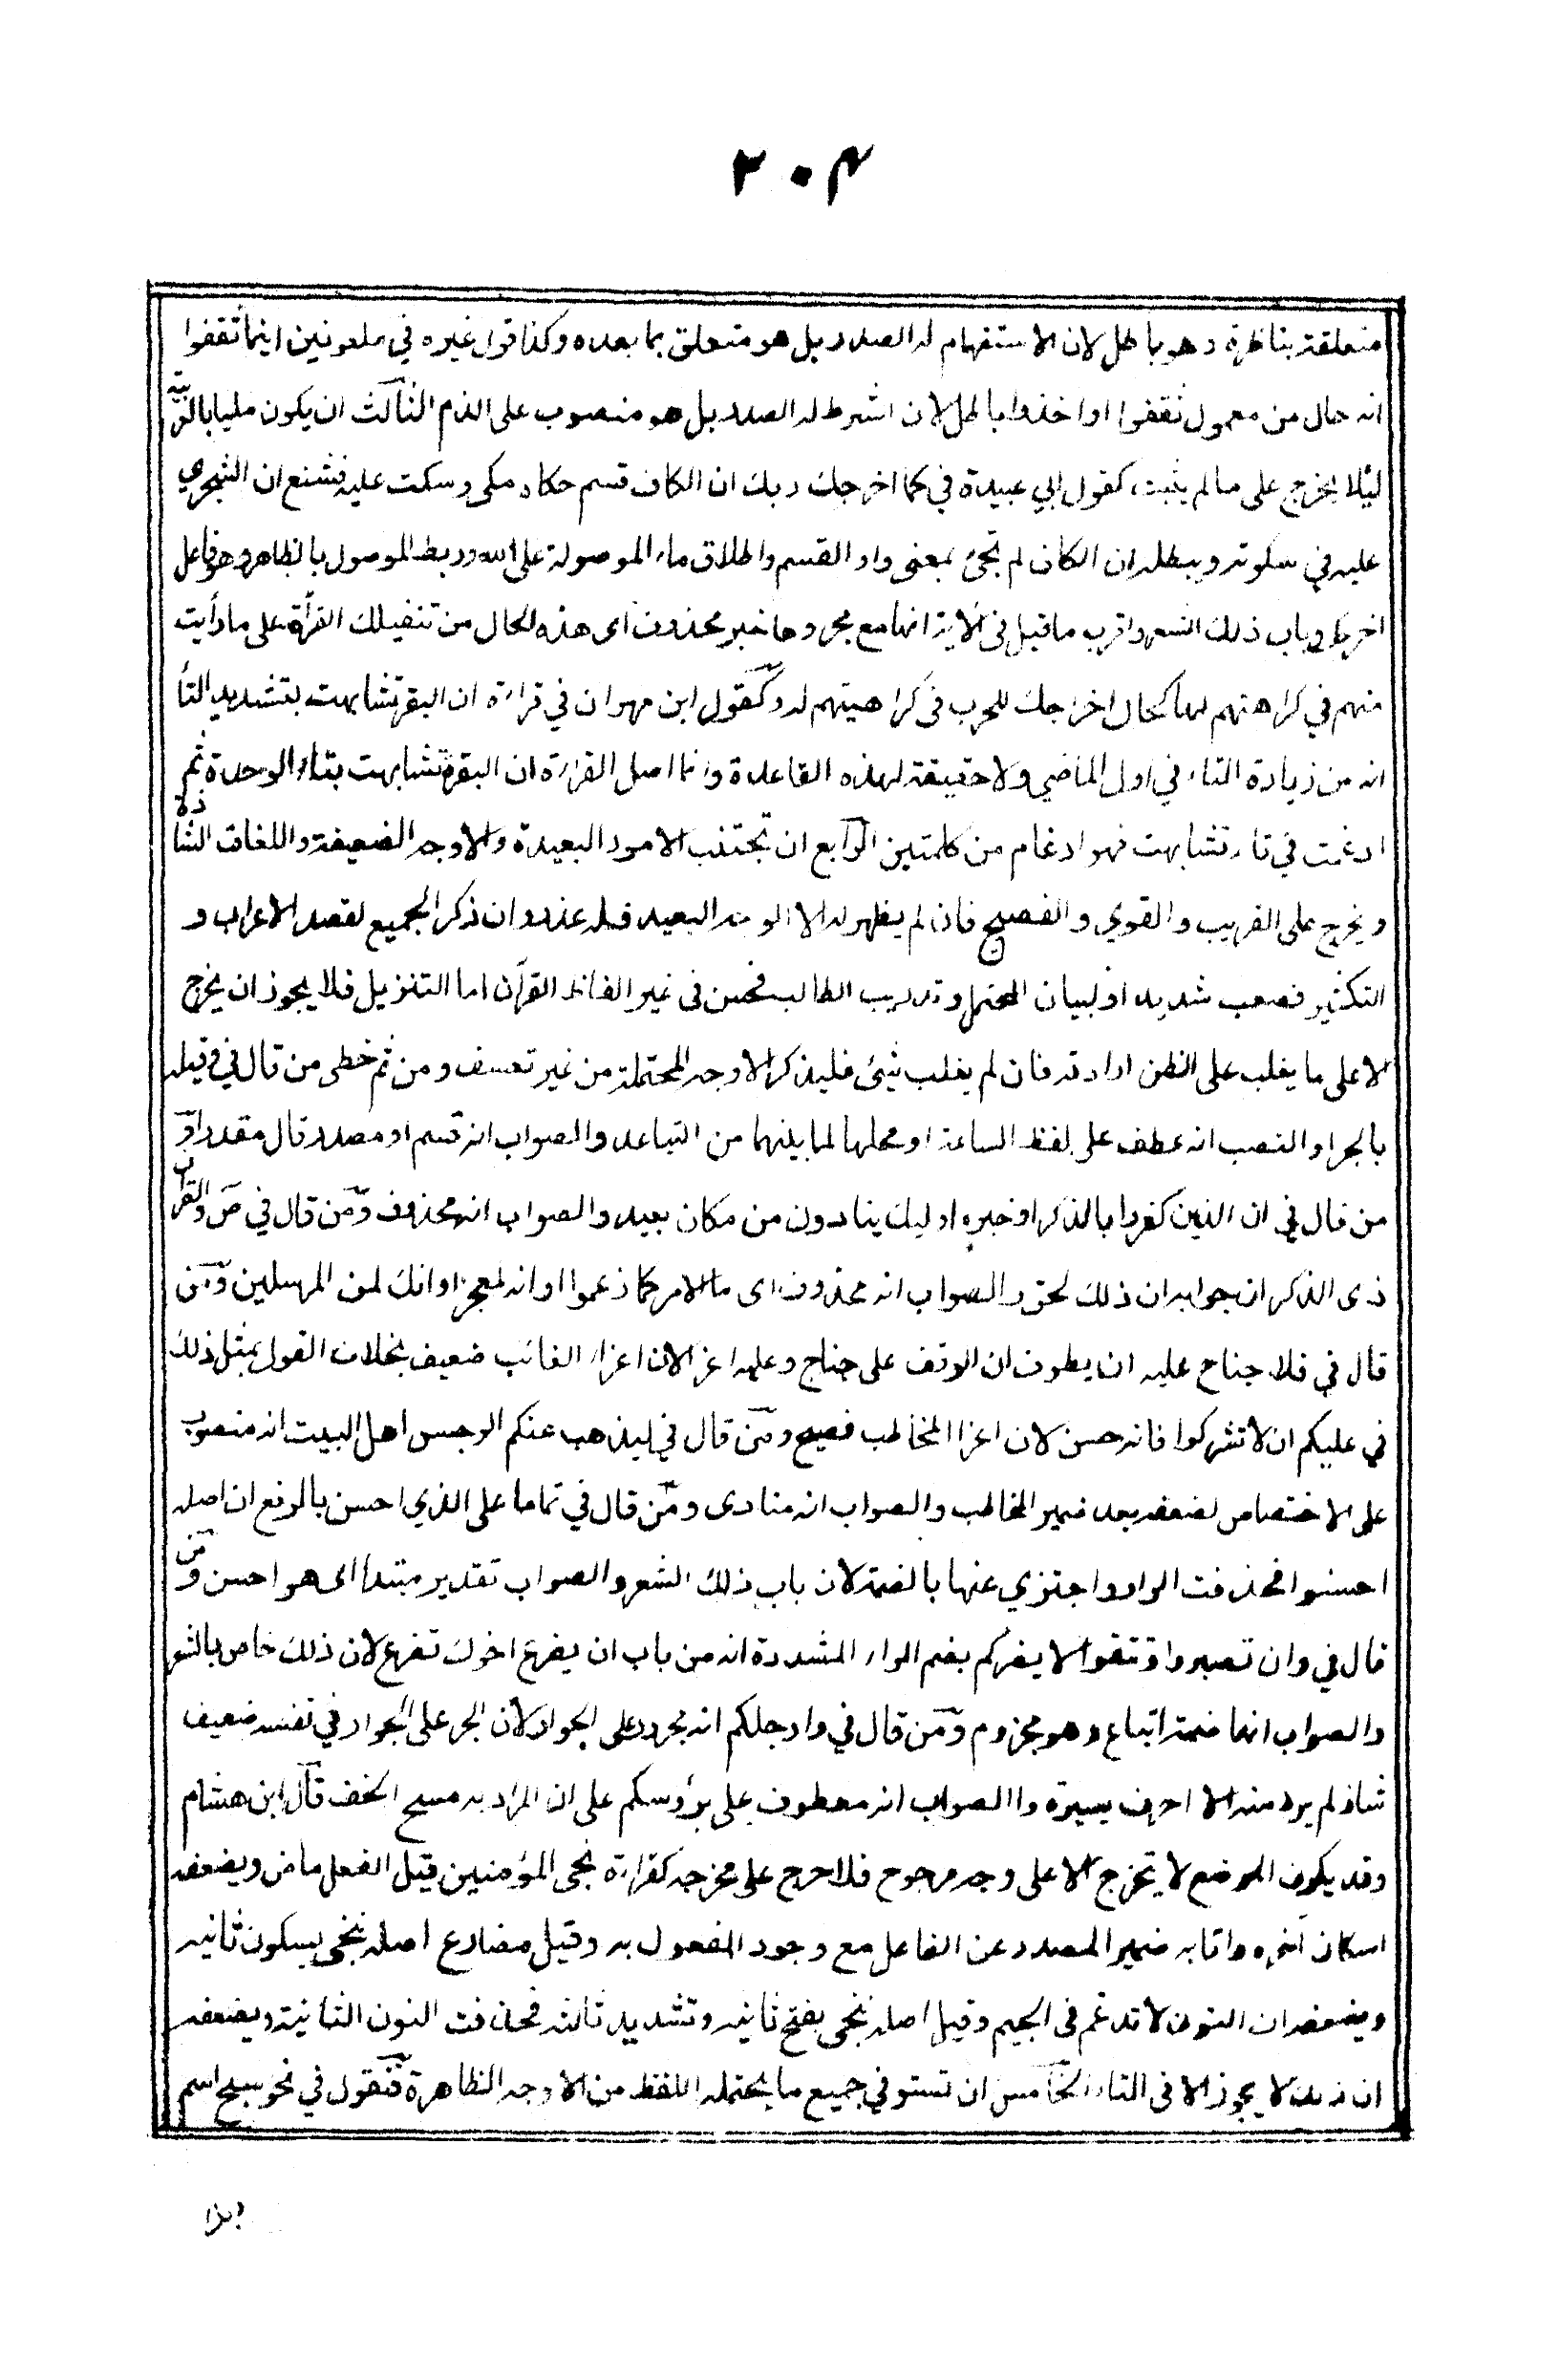 ٢٠٤
متعلقة بناظرة وهو باطل لان الاستفهام له الصدر بل هو متعلق بما بعده وكذا قول غيره في ملعونين اينما ثقفوا
انه حال من معمول ثقفوا او اخذوا باطل لان الشرط له الصدر بل هو منصوب على الذم الثالث ان يكون مليا بالعربية
ليئلا يخرج على ما لم يثبت كقول ابي عبيدة في كما اخرجك ربك ان الكاف قسم حكاه مكي وسكت عليه فشنع ابن الشجري
عليه في سكوته ويبطله ان الكاف لم تجئ بمعنى واو القسم واطلاق ما الموصولة على الله وربط الموصول بالظاهر وهو فاعل
اخرجك وباب ذلك الشعر واقرب ما قيل في الآية انها مع مجرورها خبر محذوف اى هذه الحال من تنفيلك الغزاة على ما رأيت
منهم في كراهتهم لها كحال اخراجك للحرب في كراهيتهم له وكقول ابن مهران في قراءة ان البقر تشابهت بتشديد التأ
انه من زيادة التاء في اول الماضي ولا حقيقة لهذه القاعدة وانما اصل القراءة ان البقرة تشابهت بتاء الوحدة ثم
ادغمت في تاء تشابهت فهو ادغام من كلمتين الرابع ان تجتنب الامور البعيدة والاوجه الضعيفة واللغات الشاذة
ويخرج على القريب والقوي والفصيح فان لم يظهر له الا الوجه البعيد فله عذر وان ذكر الجميع لقصد الاغراب و
التكثير فصعب شديد او لبيان المحتمل وتدريب الطالب فحسن في غير الفاظ القرآن اما التنزيل فلا يجوز ان يخرج
الا على ما يغلب على الظن ارادته فان لم يغلب شئ فليذكر الاوجه المحتملة من غير تعسف ومن ثم خطى من قال في وقيله
بالجر او النصب انه عطف على لفظ الساعة او محلها لما بينهما من التباعد والصواب انه قسم او مصدر قال مقدرا ومن
من قال في ان الذين كفروا بالذكر ان خبره اوليك ينادون من مكان بعيد والصواب انه محذوف ومن قال في ص والقرآن
ذى الذكر ان جوابه ان ذلك لحق والصواب انه محذوف اى ما الامر كما زعموا او انه لمعجز او انك لمن المرسلين ومن
قال في فلا جناح عليه ان يطوف ان الوقف على جناح وعليه اغراء لان اغراء الغائب ضعيف بخلاف القول بمثل ذلك
في عليكم ان لا تشركوا فانه حسن لان اغراا المخاطب فصيح ومن قال في ليذهب عنكم الرجس اهل البيت انه منصوب
على الاختصاص لضعفه بعد ضمير المخاطب والصواب انه منادى ومن قال في تماما على الذي احسن بالرفع ان اصله
احسنوا فحذفت الواو واجتزي عنها بالضمة لان باب ذلك الشعر والصواب تقدير مبتدأ اى هو احسن ومن
قال في وان تصبروا وتتقوا لا يضركم بضم الراء المشددة انه من باب ان يصرع اخوك تصرع لان ذلك خاص بالشعر
والصواب انها ضمة اتباع وهو مجزوم ومن قال في وارجلكم انه مجرور على الجوار لان الجر على الجوار في نفسه ضعيف
شاذ لم يرد منه الا احرف يسيرة واالصواب انه معطوف على برؤسكم على ان المراد به مسح الخف قال ابن هشام
وقد يكون الموضع لا يتخرج الا على وجه مرجوح فلا حرج على مخرجه كقراءة نجى المؤمنين قيل الفعل ماض ويضعفه
اسكان آخره وانابه ضمير المصدر عن الفاعل مع وجود المفعول به وقيل مضارع اصله ننجى بسكون ثانيه
ويضعفه ان النون لا تدغم في الجيم وقيل اصله ننجى بفتح ثانيه وتشديد ثالثه فحذفت النون الثانية ويضعفه
ان ذلك لا يجوز الا في التاء الخامس ان تستوفي جميع ما يحتمله اللفظ من الاوجه الظاهرة فتقول في نحو سبح اسم